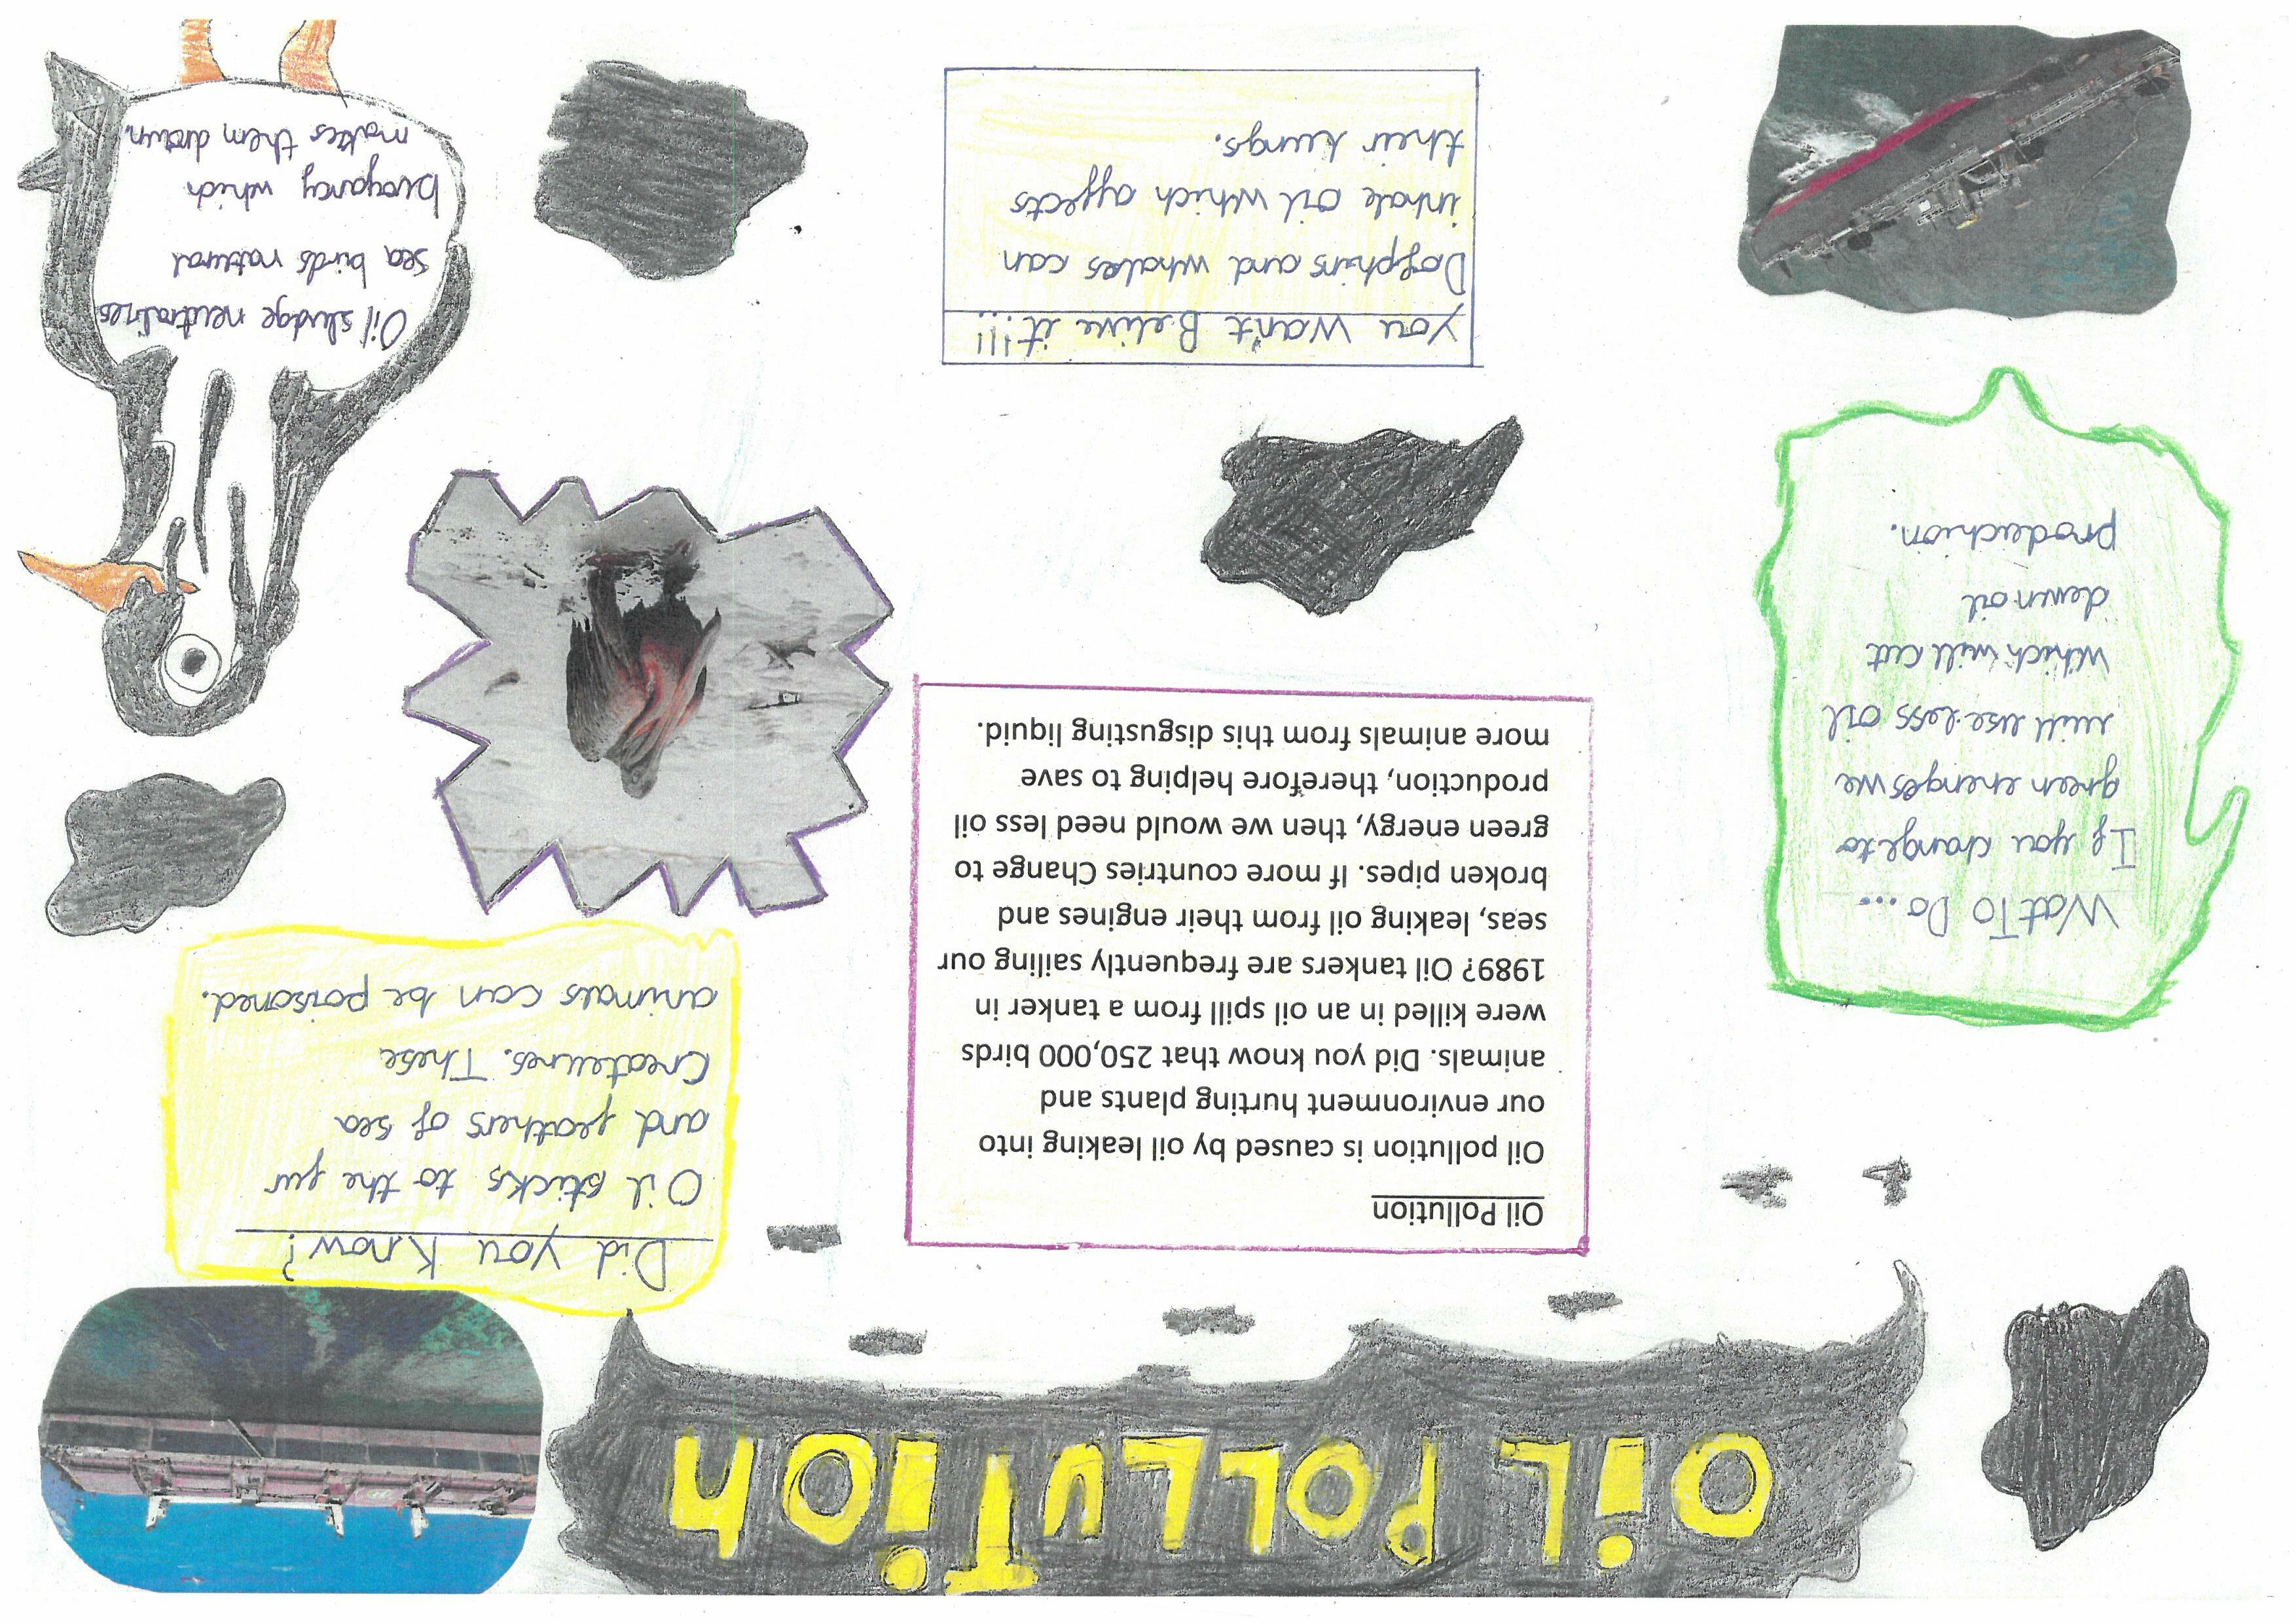 OiL POLLUTiON
Did you Know?
Oil sticks to the fur
and feathers of sea
Createures. These
animals can be poisoned.
Oil Pollution
Oil pollution is caused by oil leaking into
our environment hurting plants and
animals. Did you know that 250,000 birds
were killed in an oil spill from a tanker in
1989? Oil tankers are frequently sailing our
seas, leaking oil from their engines and
broken pipes. If more countries Change to
green energy, then we would need less oil
production, therefore helping to save
more animals from this disgusting liquid.
Wat To Do...
If you change to
green energes we
will use less oil
which will cut
down oil
production.
You Wan't Belive it!!!
Dolphins and whales can
inhale oil which affects
their lungs.
Oil sludge neutralizes
sea birds natural
buoyancy which
makes them drown.